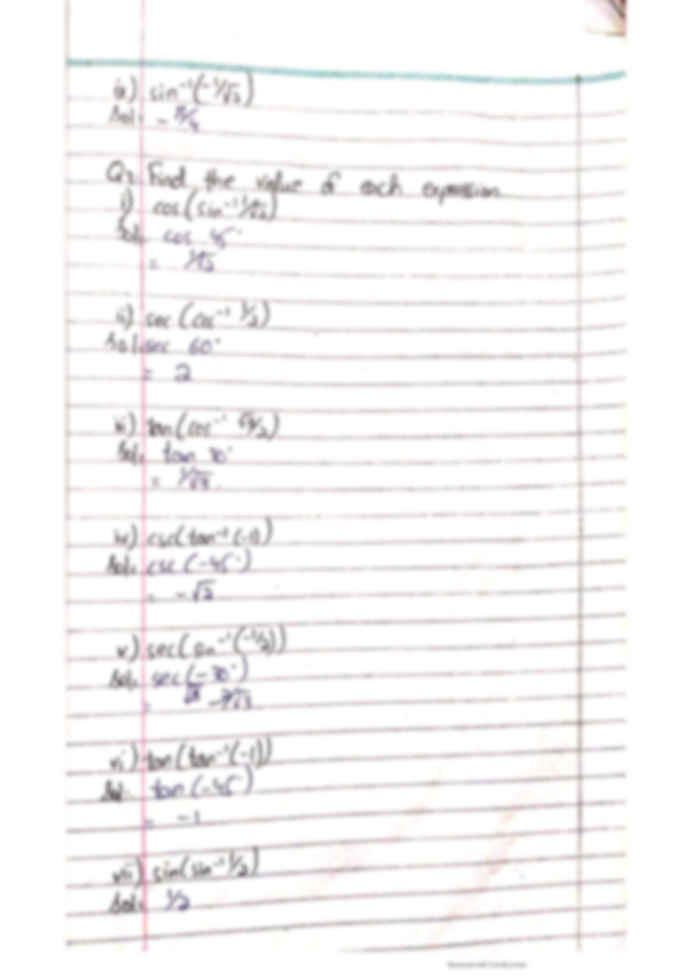 ix) sin⁻¹(-1/√2)
Sol: - π/4
Q2 Find the value of each expression
i) cos(sin⁻¹ 1/√2)
Sol: cos 45°
= 1/√2
ii) sec (cos⁻¹ 1/2)
Sol: sec 60°
= 2
iii) tan(cos⁻¹ √3/2)
Sol: tan 30°
= 1/√3
iv) csc(tan⁻¹(-1))
Sol: csc (-45°)
= -√2
v) sec(sin⁻¹(-1/2))
Sol: sec(-30°)
=
vi) tan(tan⁻¹(-1))
Sol: tan (-45°)
= -1
vii) sin(sin⁻¹ 1/2)
Sol: 1/2